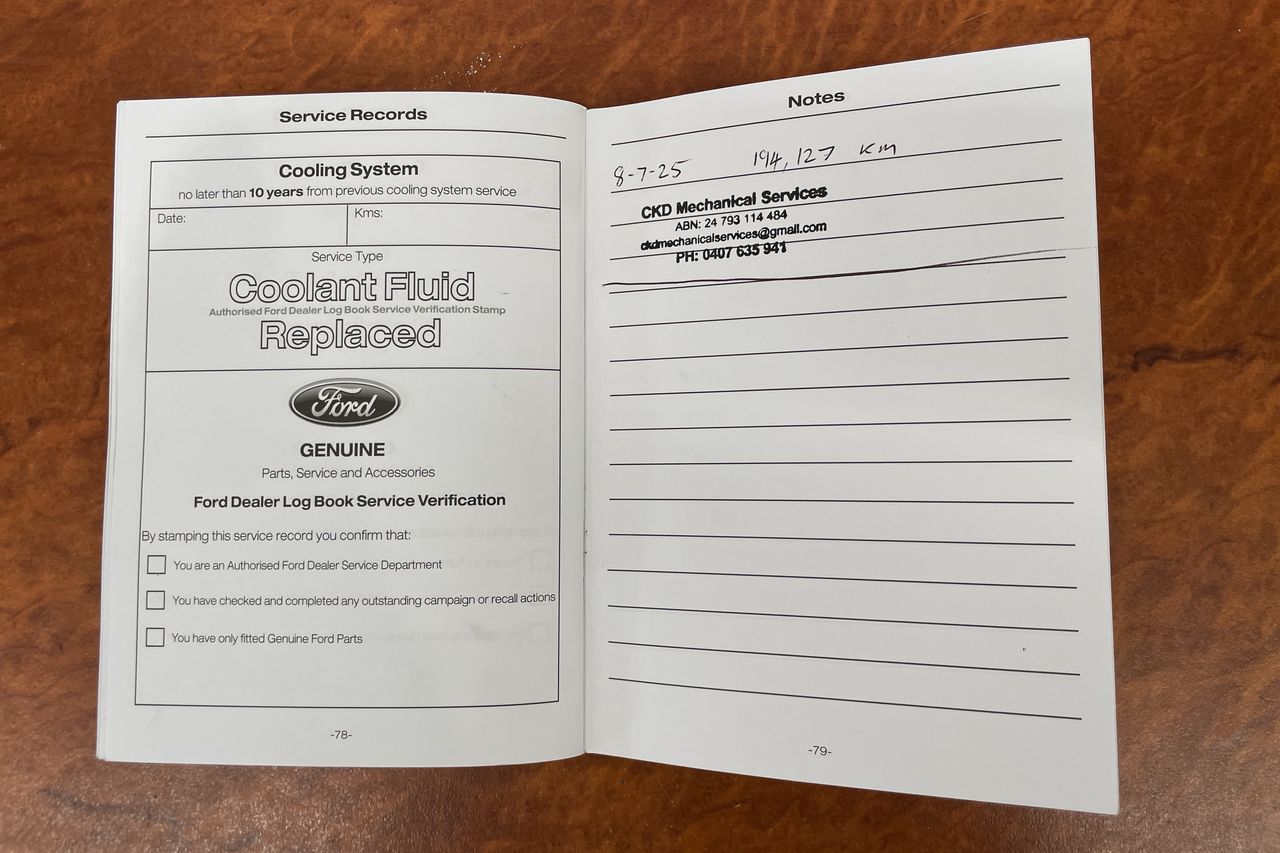 Service Records
Cooling System
no later than 10 years from previous cooling system service
Date:
Kms:
Service Type
Coolant Fluid
Authorised Ford Dealer Log Book Service Verification Stamp
Replaced
Ford
GENUINE
Parts, Service and Accessories
Ford Dealer Log Book Service Verification
By stamping this service record you confirm that:
You are an Authorised Ford Dealer Service Department
You have checked and completed any outstanding campaign or recall actions
You have only fitted Genuine Ford Parts
-78-
Notes
8-7-25 194,127 Km
CKD Mechanical Services
ABN: 24 793 114 484
ckdmechanicalservices@gmail.com
PH: 0407 635 941
-79-